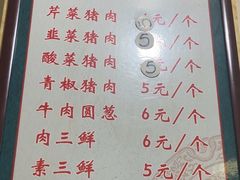 芹菜猪肉 6元/个
韭菜猪肉 5元/个
酸菜猪肉 5元/个
青椒猪肉 5元/个
牛肉圆葱 6元/个
肉三鲜 6元/个
素三鲜 5元/个